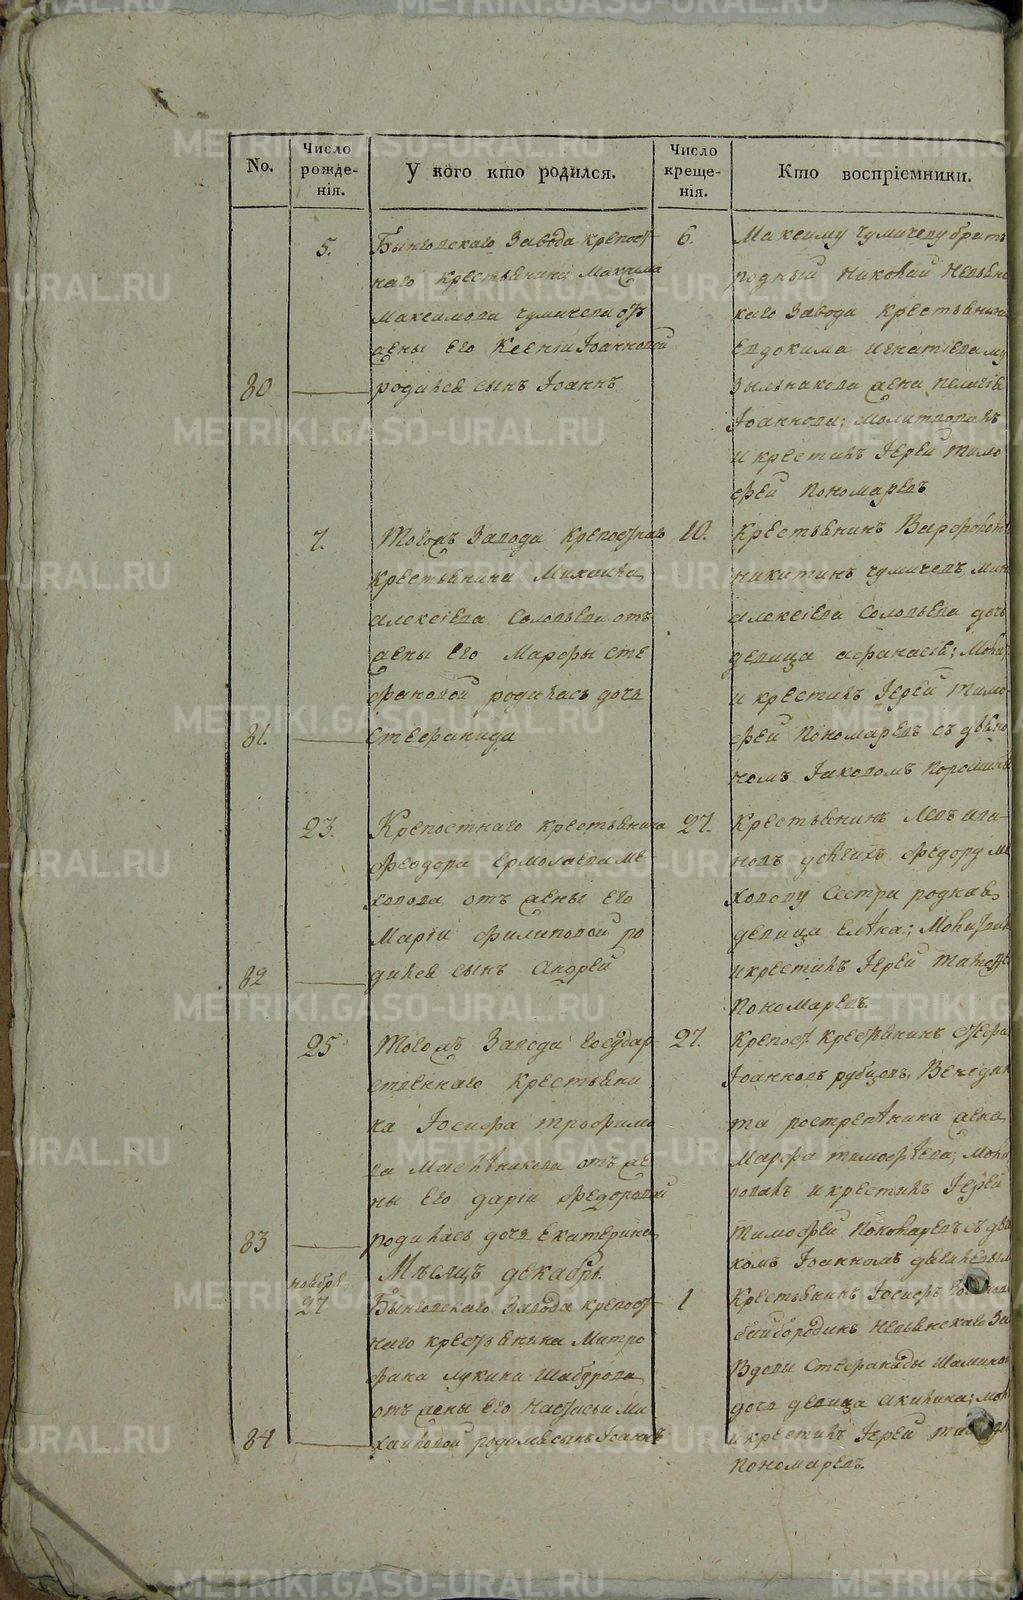 No.
Число рожде-нія.
У кого кто родился.
Число креще-нія.
Кто воспріемники.
5.
Быньговскаго Завода крепост
наго крестьянина Максима
Максимова чумичева отъ
жены его Ксеніи Іоанновой
80
родился сынъ Іоаннъ
6.
Максиму чумичеву братъ
родный Николай Невьянс
каго Завода крестьянина
Евдокима игнатіева
жена пелагіе
Іоаннова; молитвовалъ
и крестилъ Іерей тимо
фей пономаревъ
7.
Тогожъ Завода крепостнаго
крестьянина Михаила
алексіева Соловьева отъ
жены его Марфы сте
фановой родилась дочь
81.
стефанида
10.
Крестьянинъ Варфоло
никитинъ чумичевъ
алексіева Соловьева дочь
девица афанасіе; Мол
и крестилъ Іерей тимо-
фей пономаревъ съ дьяч
комъ Іаковомъ
23.
Крепостнаго крестьянина
Феодора ермолаева ме-
хова отъ жены его
Маріи филиповой ро
82
дился сынъ Андрей
27.
Крестьянинъ Левъ ива-
новъ Федору ме
хову сестра родная
девица елена; Молитвов
и крестилъ Іерей тимофей
пономаревъ
25
Тогожъ Завода государ-
ственнаго крестьяни
на Іосифа трофимо
ва Масленикова отъ же
ны его даріи федоровой
83
родилась дочь екатерина
27.
Крепост крестьянинъ
Іоанновъ рубцовъ.
жена
Марфа тимофеева; Моли
вовалъ и крестилъ Іерей
тимофей пономаревъ съ дья
комъ Іоанномъ
Мѣсяцъ декабрь.
ноября
27
Быньговскаго Завода крепост
наго крестьянина Митро
фана лукина Шабурова
отъ жены его Настасьи Ми
84
хайловой родился сынъ Іоаннъ
1
Крестьянинъ Іосифъ
байбородинъ Невьянскаго За
Вдовы стефаниды
дочь девица акилина; мол
и крестилъ Іерей тимофей
пономаревъ.
METRIKI.GASO-URAL.RU